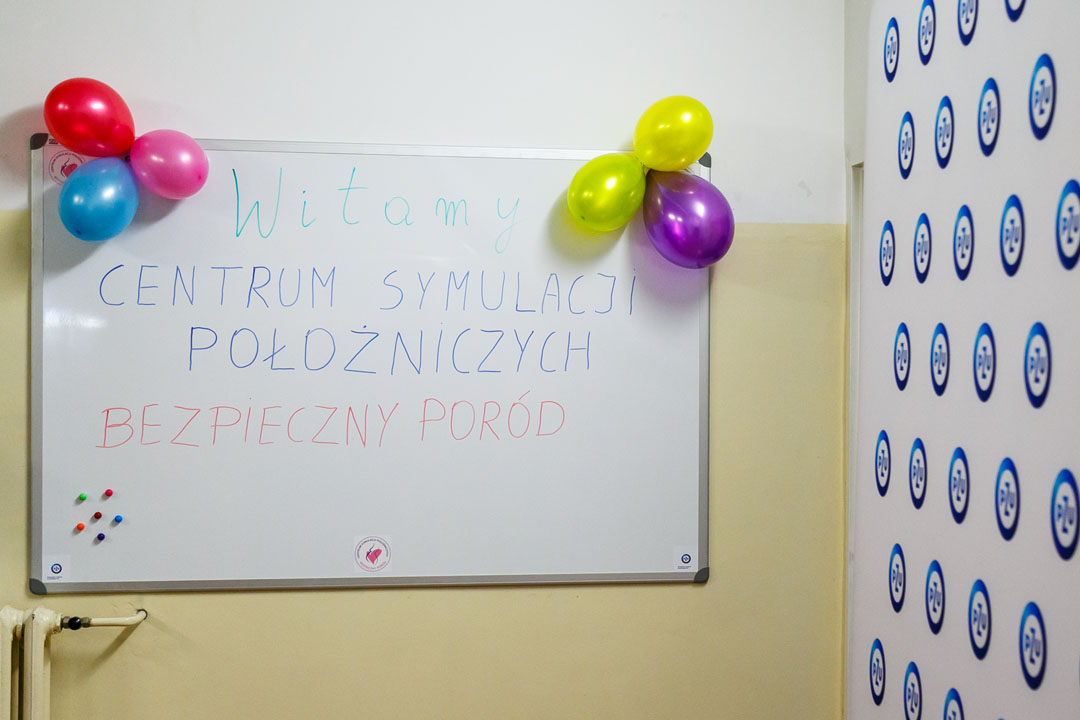 Witamy
CENTRUM SYMULACJI
POŁOŻNICZYCH
BEZPIECZNY PORÓD
PZU